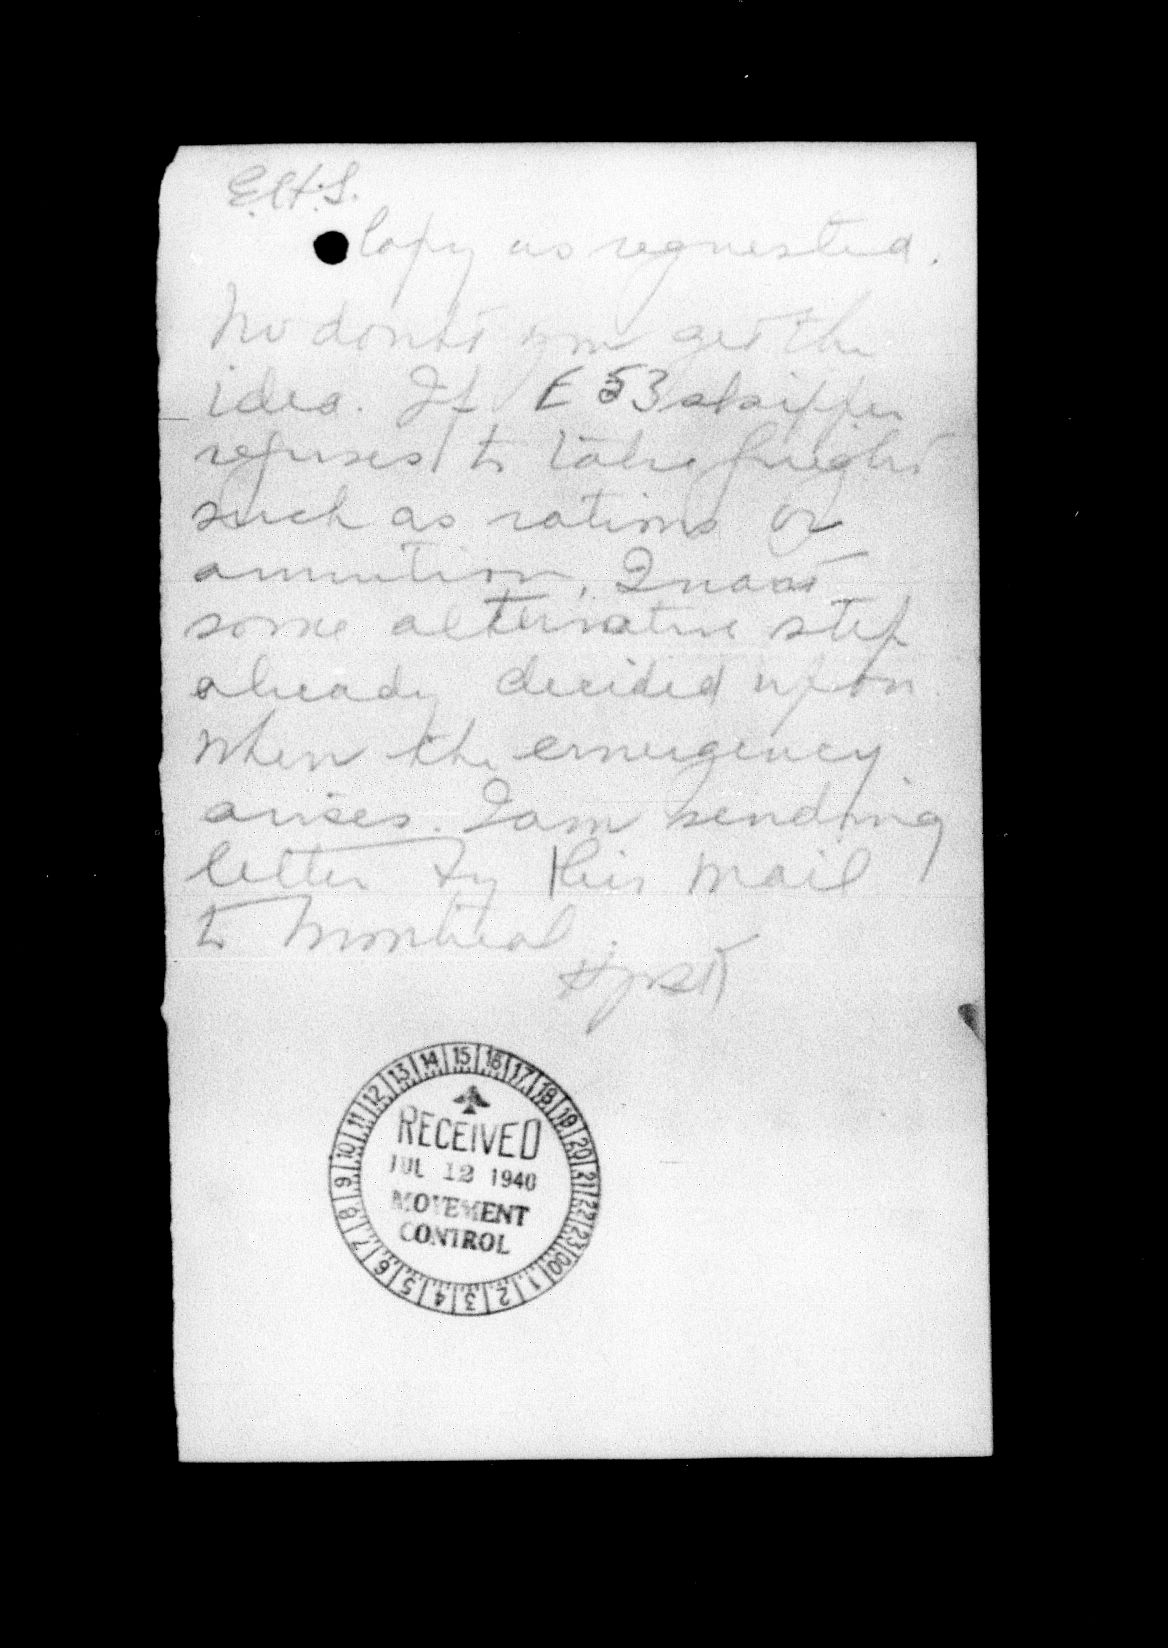 E.H.S.
Copy as requested.
No doubt you get the
idea. If E 53 skipper
refuses to take freight
such as rations or
ammution, I want
some alternative step
already decided upon
when the emergency
arises. I am sending
letter by this mail
to Montreal.
14 15 16 17 18 19 20 21 22 23 00 1 2 3 4 5 6 7 8 9 10 11 12 13
RECEIVED
JUL 12 1940
MOVEMENT
CONTROL